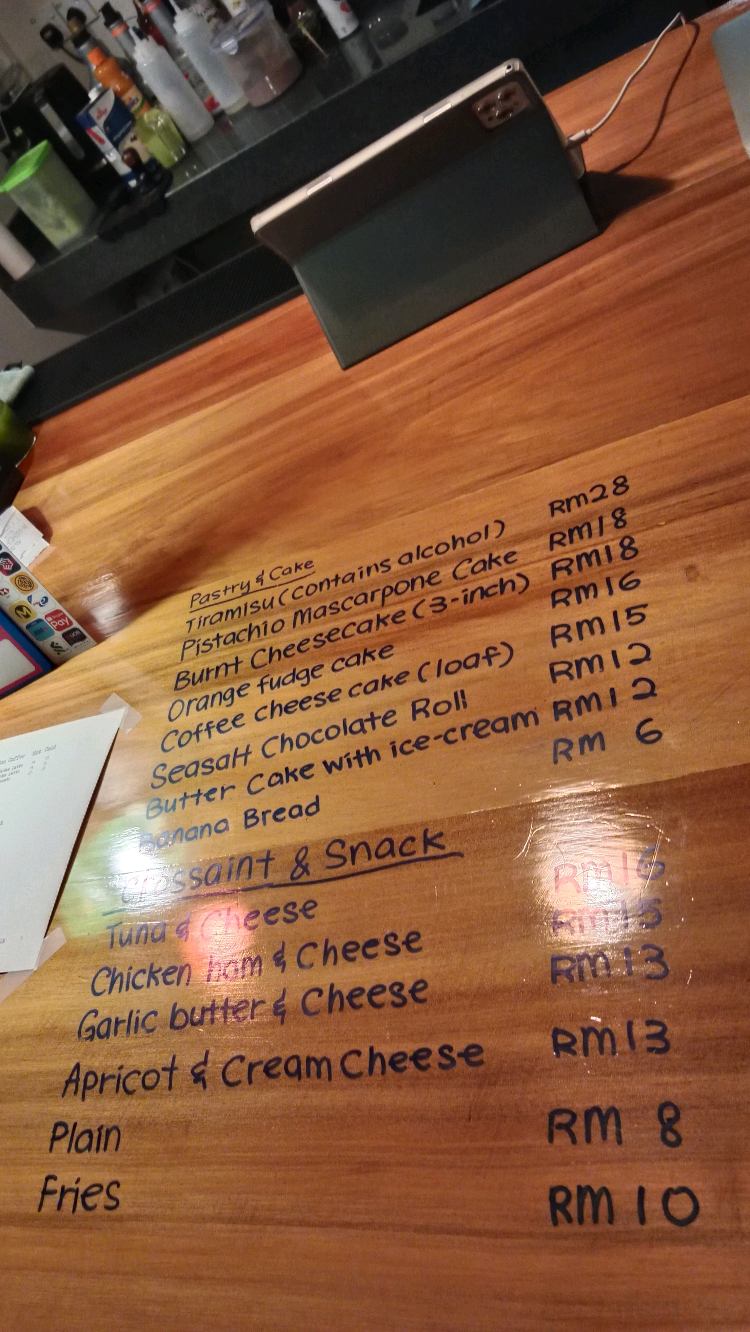 Pastry & Cake
Tiramisu (contains alcohol) RM28
Pistachio Mascarpone Cake RM18
Burnt Cheesecake (3-inch) RM18
Orange fudge cake RM16
Coffee cheese cake (loaf) RM15
Seasalt Chocolate Roll RM12
Butter Cake with ice-cream RM12
Banana Bread RM 6
Crossaint & Snack
Tuna & Cheese RM16
Chicken ham & Cheese RM15
Garlic butter & Cheese RM13
Apricot & Cream Cheese RM13
Plain RM 8
Fries RM 10
Pay